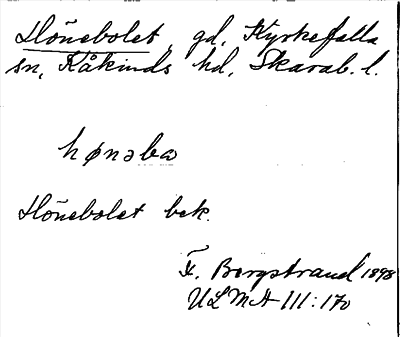 Hönebolet, gd, Kyrkefalla
sn, Kåkinds hd, Skarab. l.
hønəba
Hönebolet bek.
F. Bergstrand 1898
ULMA 111:170